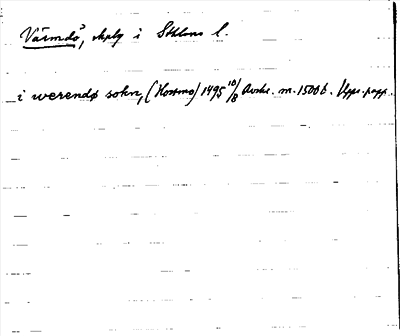 Värmdö, skplg i Sthlms l.
i werendø sokn, (Hosmo) 1495 10/8 Avskr. m. 1500 t. Upps. papp.